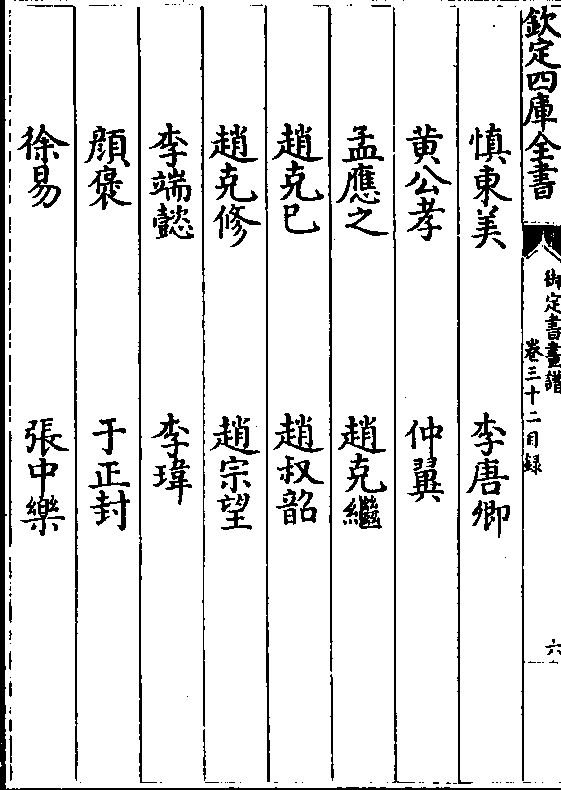 欽定四庫全書
御定書畫譜
卷三十二目録
六
慎東美 李唐卿
黄公孝 仲翼
孟應之 趙克繼
趙克巳 趙叔韶
趙克修 趙宗望
李端懿 李瑋
顔襃 于正封
徐易 張中樂